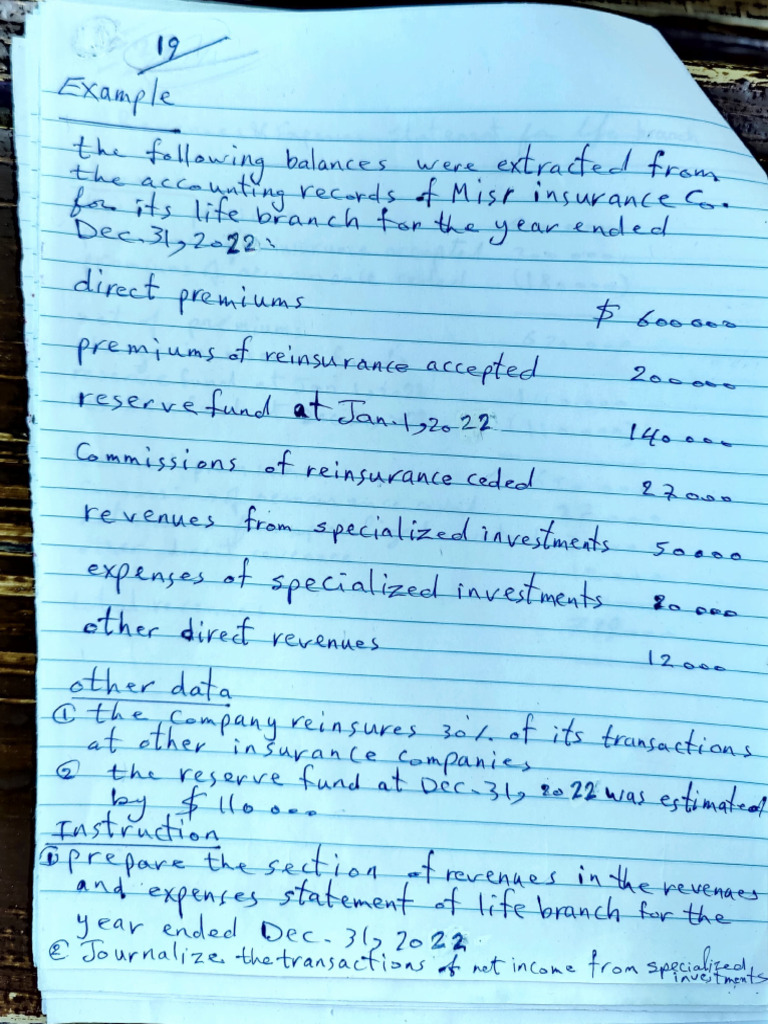 19
Example
the following balances were extracted from
the accounting records of Misr insurance Co.
for its life branch for the year ended
Dec. 31, 2022:
direct premiums $ 600000
premiums of reinsurance accepted 200000
reserve fund at Jan. 1, 2022 140000
Commissions of reinsurance ceded 27000
revenues from specialized investments 50000
expenses of specialized investments 20000
other direct revenues 12000
other data
① the company reinsures 30% of its transactions
at other insurance companies
② the reserve fund at Dec. 31, 2022 was estimated
by $ 110000
Instruction
① prepare the section of revenues in the revenues
and expenses statement of life branch for the
year ended Dec. 31, 2022
② Journalize the transactions of net income from specialized
investments